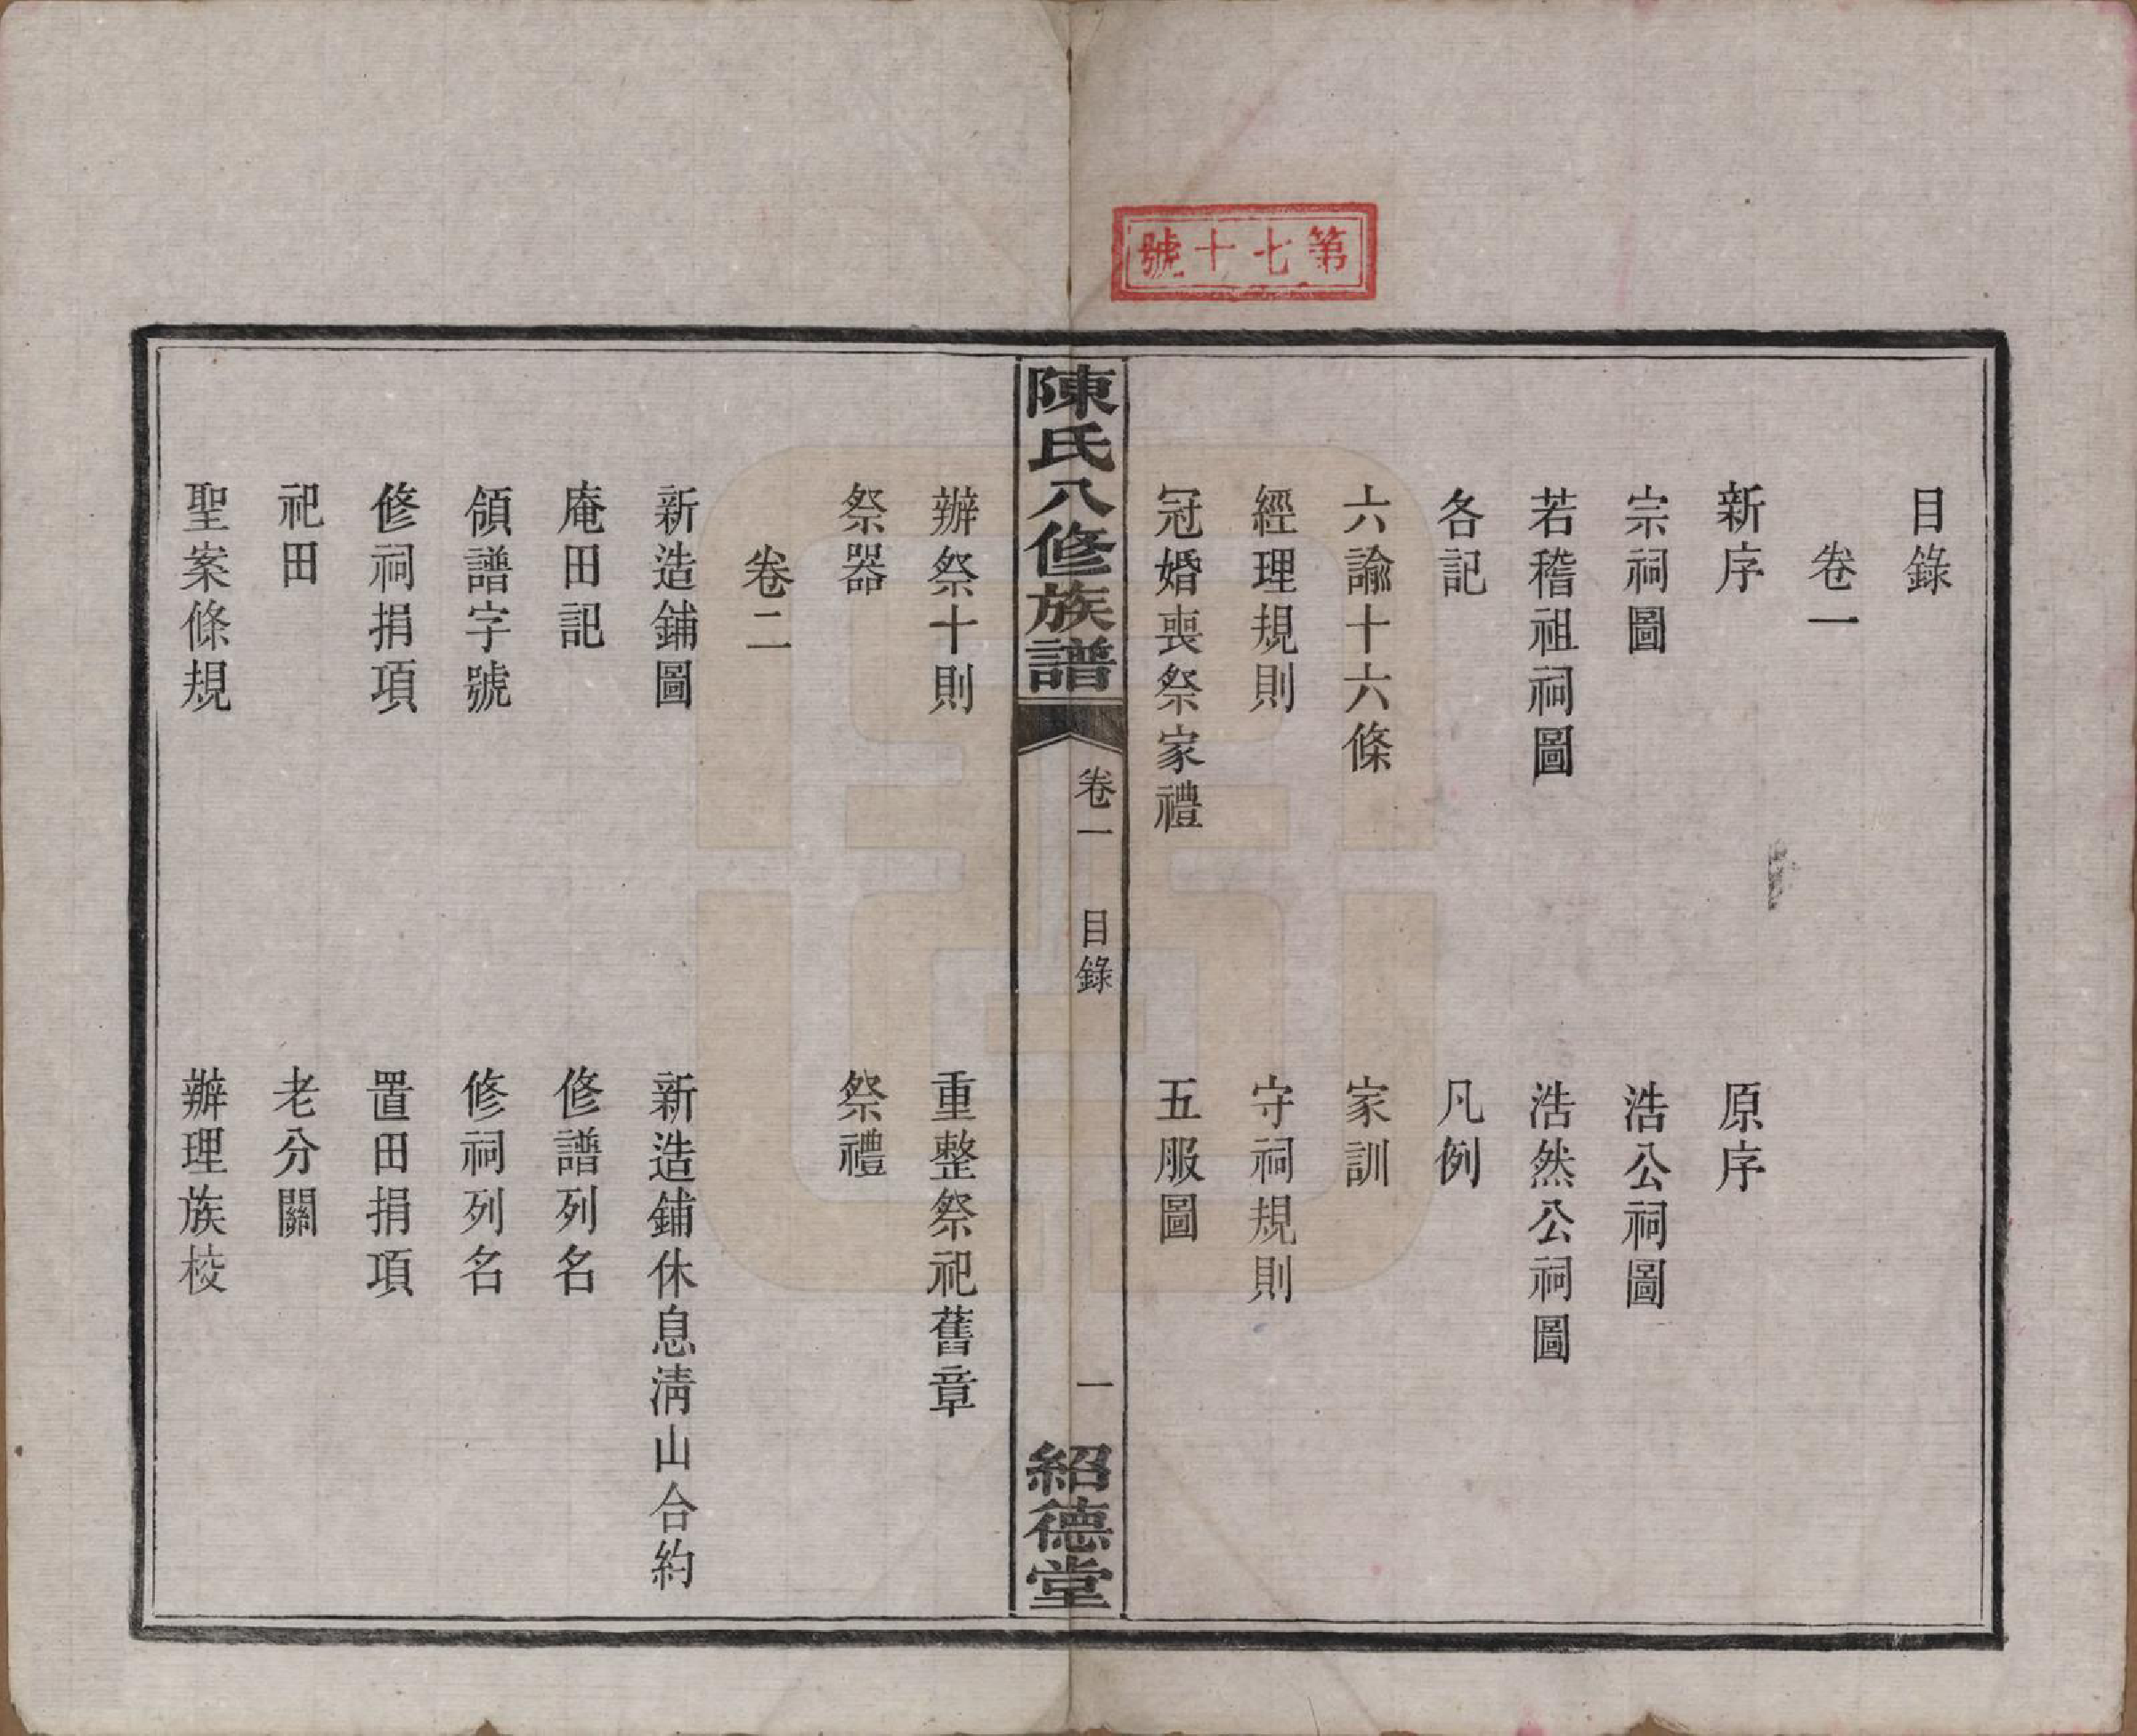 第七十號
目錄
卷一
新序　原序
宗祠圖　浩公祠圖
若稽祖祠圖　浩然公祠圖
各記　凡例
六諭十六條　家訓
經理規則　守祠規則
冠婚喪祭家禮　五服圖
陳氏八修族譜　卷一　目錄　一　紹德堂
辦祭十則　重整祭祀舊章
祭器　祭禮
卷二
新造鋪圖　新造鋪休息淸山合約
庵田記　修譜列名
領譜字號　修祠列名
修祠捐項　置田捐項
祀田　老分關
聖案條規　辦理族校